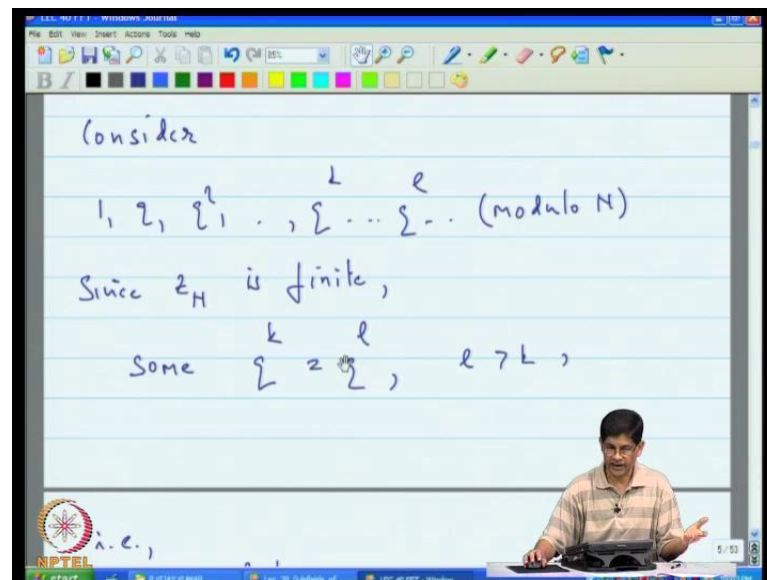 LEC 40 FFT - Windows Journal
File Edit View Insert Actions Tools Help
85%
B I
Consider
1, q, q², . , q^k ... q^l .. (modulo N)
Since Z_N is finite,
Some q^k = q^l, l > k,
i.e.,
5/53
NPTEL
start